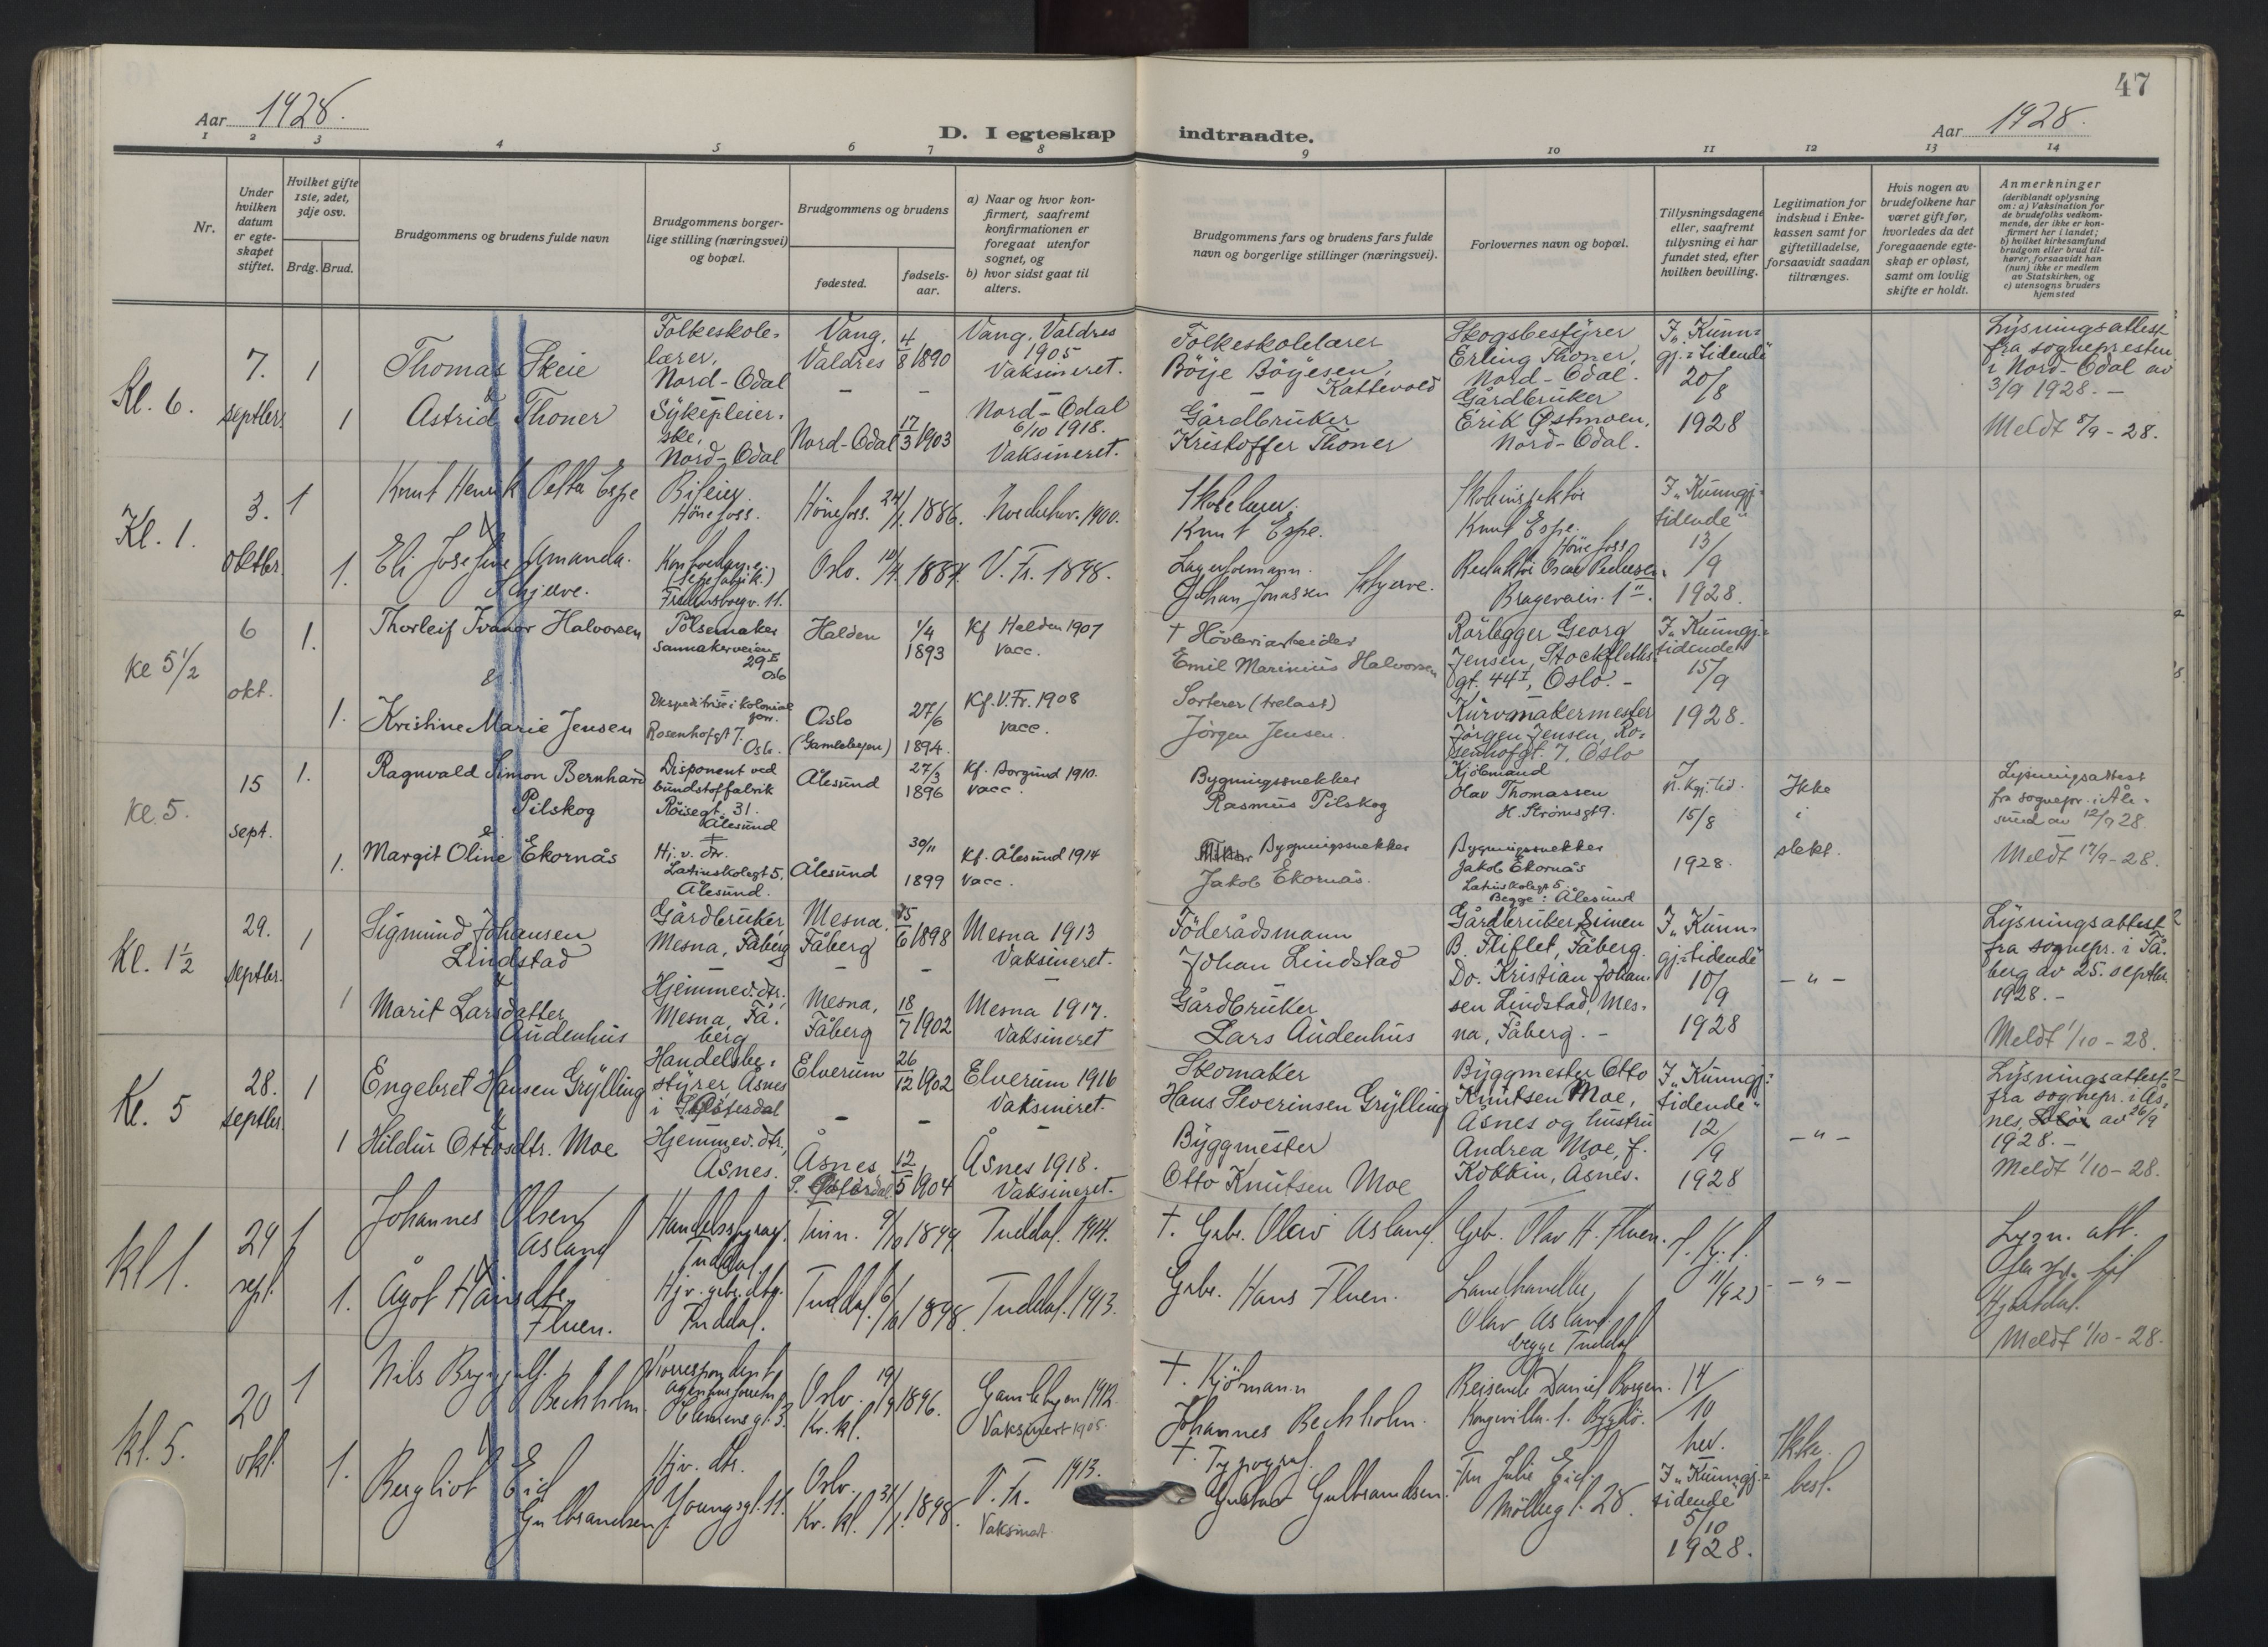 47
Aar 1928.
D. I egteskap indtraadte.
Aar 1928.
1 2 3 4 5 6 7 8 9 10 11 12 13 14
Nr.
Under
hvilken
datum
er egte-
skapet
stiftet.
Hvilket gifte
1ste, 2det,
3dje osv.
Brdg. Brud.
Brudgommens og brudens fulde navn
Brudgommens borger-
lige stilling (næringsvei)
og bopæl.
Brudgommens og brudens
fødested.
fødsels-
aar.
a) Naar og hvor kon-
firmert, saafremt
konfirmationen er
foregaat utenfor
sognet, og
b) hvor sidst gaat til
alters.
Brudgommens fars og brudens fars fulde
navn og borgerlige stillinger (næringsvei).
Forlovernes navn og bopæl.
Tillysningsdagene
eller, saafremt
tillysning ei har
fundet sted, efter
hvilken bevilling.
Legitimation for
indskud i Enke-
kassen samt for
giftetilladelse,
forsaavidt saadan
tiltrænges.
Hvis nogen av
brudefolkene har
været gift før,
hvorledes da det
foregaaende egte-
skap er opløst,
samt om lovlig
skifte er holdt.
Anmerkninger
(deriblandt oplysning
om: a) Vaksination for
de brudefolks vedkom-
mende, der ikke er kon-
firmert her i landet;
b) hvilket kirkesamfund
brudgom eller brud til-
hører, forsaavidt han
(hun) ikke er medlem
av Statskirken, og
c) utensogns bruders
hjemsted
Kl. 6.
7.
septbr.
1
Thomas Skeie
&
Folkeskole-
lærer,
Nord-Odal
Vang,
Valdres
4/8 1890
Vang, Valdres
1905
Vaksineret.
Folkeskolelærer
Böije Böijesen,
Kattevold
Skogsbestyrer
Erling Thoner,
Nord-Odal.
I „Kunn-
gj.-tidende"
20/8
1928
Lysningsattest
fra sognepresten
i Nord-Odal av
3/9 1928. -
1
Astrid Thoner
Sykepleier-
ske,
Nord-Odal
Nord-Odal
17/3 1903
Nord-Odal
6/10 1918.
Vaksineret.
Gårdbruker
Kristoffer Thoner
Gårdbruker
Erik Østmoen,
Nord-Odal.
Meldt 8/9 - 28.
Kl. 1.
3.
oktbr.
1
Knut Henrik Espe
Hönefoss.
Hönefoss.
24/1 1886.
1900.
Knut Espe.
Knut Espe.
Hönefoss
I „Kunngj-
tidende"
13/9
1928.
1.
Eli Josefine Amanda
Oslo.
V. Fr. 1898.
Johan Jonassen
Redaktör Oscar Pedersen,
Ke 5 1/2
6
okt.
1.
Thorleif Ivanor Halvorsen
&
Pölsemaker
Sannakerveien
29 II
Oslo
Halden
1/4
1893
Kf Halden 1907
Vacc.
† Hövleriarbeider
Emil Marinius Halvorsen
Rörlegger Georg
Jensen, Stockfleths-
gt. 44 I, Oslo. -
I „Kunngj.-
tidende"
15/9
1928.
1.
Kristine Marie Jensen
Ekspeditrise i kolonial
forr.
Rosenhofgt 7.
Oslo.
Oslo
(Gamlebyen)
27/6
1894.
Kf. V. Fr. 1908
vacc.
Sorterer (trelast)
Jörgen Jensen.
Kurvmakermester
Jörgen Jensen, Ro-
senhofgt. 7, Oslo
Ke. 5.
15
sept.
1.
Ragnvald Simon Bernhard
Pilskog
&
Disponent ved
bundstoffabrik
Röisegt. 31.
Ålesund
Ålesund
27/3
1896
Kf. Borgund 1910.
Vacc.
Bygningssnekker
Rasmus Pilskog
Kjöbmand
Olav Thomassen
H. Strömsgt 9.
15/8
1928.
Ikke
i
slekt.
Lysningsattest
fra sognepr. i Åle-
sund av 12/9 28.
1.
Margit Oline Ekornås
Hj. v. dtr.
Latinskolegt 5.
Ålesund.
Ålesund
30/11
1899
Kf. Ålesund 1914
Vacc.
Bygningssnekker
Jakob Ekornås.
Bygningssnekker
Jakob Ekornås
Latinskolegt 5
Begge: Ålesund
Meldt 17/9 - 28.
Kl. 1 1/2
29.
septbr.
1
Sigmund Johansen
Lindstad
&
Gårdbruker
Mesna, Fåberg
Mesna,
Fåberg
1898
Mesna 1913
Vaksineret.
Föderådsmann
Johan Lindstad
Gårdbruker Simen
B. Fliflet, Fåberg.
I „Kunn-
gj.-tidende"
10/9
1928
- " -
Lysningsattest
fra sognepr. i Få-
berg av 25. septbr.
1928. -
1
Marit Larsdatter
Audenhus
Hjemmev. dtr.,
Mesna, Få-
berg
Mesna,
Fåberg
18/7 1902
Mesna 1917.
Vaksineret
Gårdbruker
Lars Audenhus
Do. Kristian Johan-
sen Lindstad, Mes-
na, Fåberg. -
Meldt 1/10 - 28.
Kl. 5
28.
septbr.
1
Engebret Hansen Grylling
&
Handelsbe-
styrer, Åsnes
i
Elverum
26/12 1902
Elverum 1916
Vaksineret.
Skomaker
Hans Severinsen Grylling
Byggmester Otto
Knutsen Moe,
Åsnes og hustru
I „Kunngj.-
tidende"
12/9
1928
- " -
Lysningsattest
fra sognepr. i Ås-
nes, av 26/9
1928. -
1
Hildur Ottosdtr. Moe
Hjemmev. dtr.,
Åsnes.
Åsnes,
12/5 1904
Åsnes 1918.
Vaksineret.
Byggmester
Otto Knutsen Moe
Andrea Moe, f.
Kokkin, Åsnes.
Meldt 1/10 - 28.
Kl 1.
29
sept.
1
Johannes Olsen
Åsland
Tuddal.
Tinn.
Tuddal. 1914.
†. Gbr. Olav Åsland.
Gbr. Olav H. Fluen.
- " -
Lysn. att.
1.
Ågot Hansdtr.
Fluen.
Tuddal.
Tuddal.
1898.
Tuddal. 1913.
Gbr. Hans Fluen.
Landhandler
Olav Åsland
begge Tuddal
Hjartdal.
Meldt 1/10 - 28.
Kl. 5.
20
okt.
1
Nils
Bechholm.
Korrespondent
Clemensgt. 3.
Oslo.
Kr. kl.
19/9 1896.
Gamlebyen 1912.
Vaksinert 1905.
†. Kjöbmann
Johannes Bechholm.
Reisende Daniel Borgen.
14/10
Ikke
besl.
1.
Bergliot Eid
Gulbrandsen
Hjv. dtr.
Youngsgt. 11.
Oslo.
Kr. kl.
31/1 1898.
V. Fr. 1913.
Vaksinert.
†. Typograf.
Gustav Gulbrandsen.
Fru Julie Eid.
Möllergt. 28.
I „Kunngj.-
tidende"
5/10
1928.